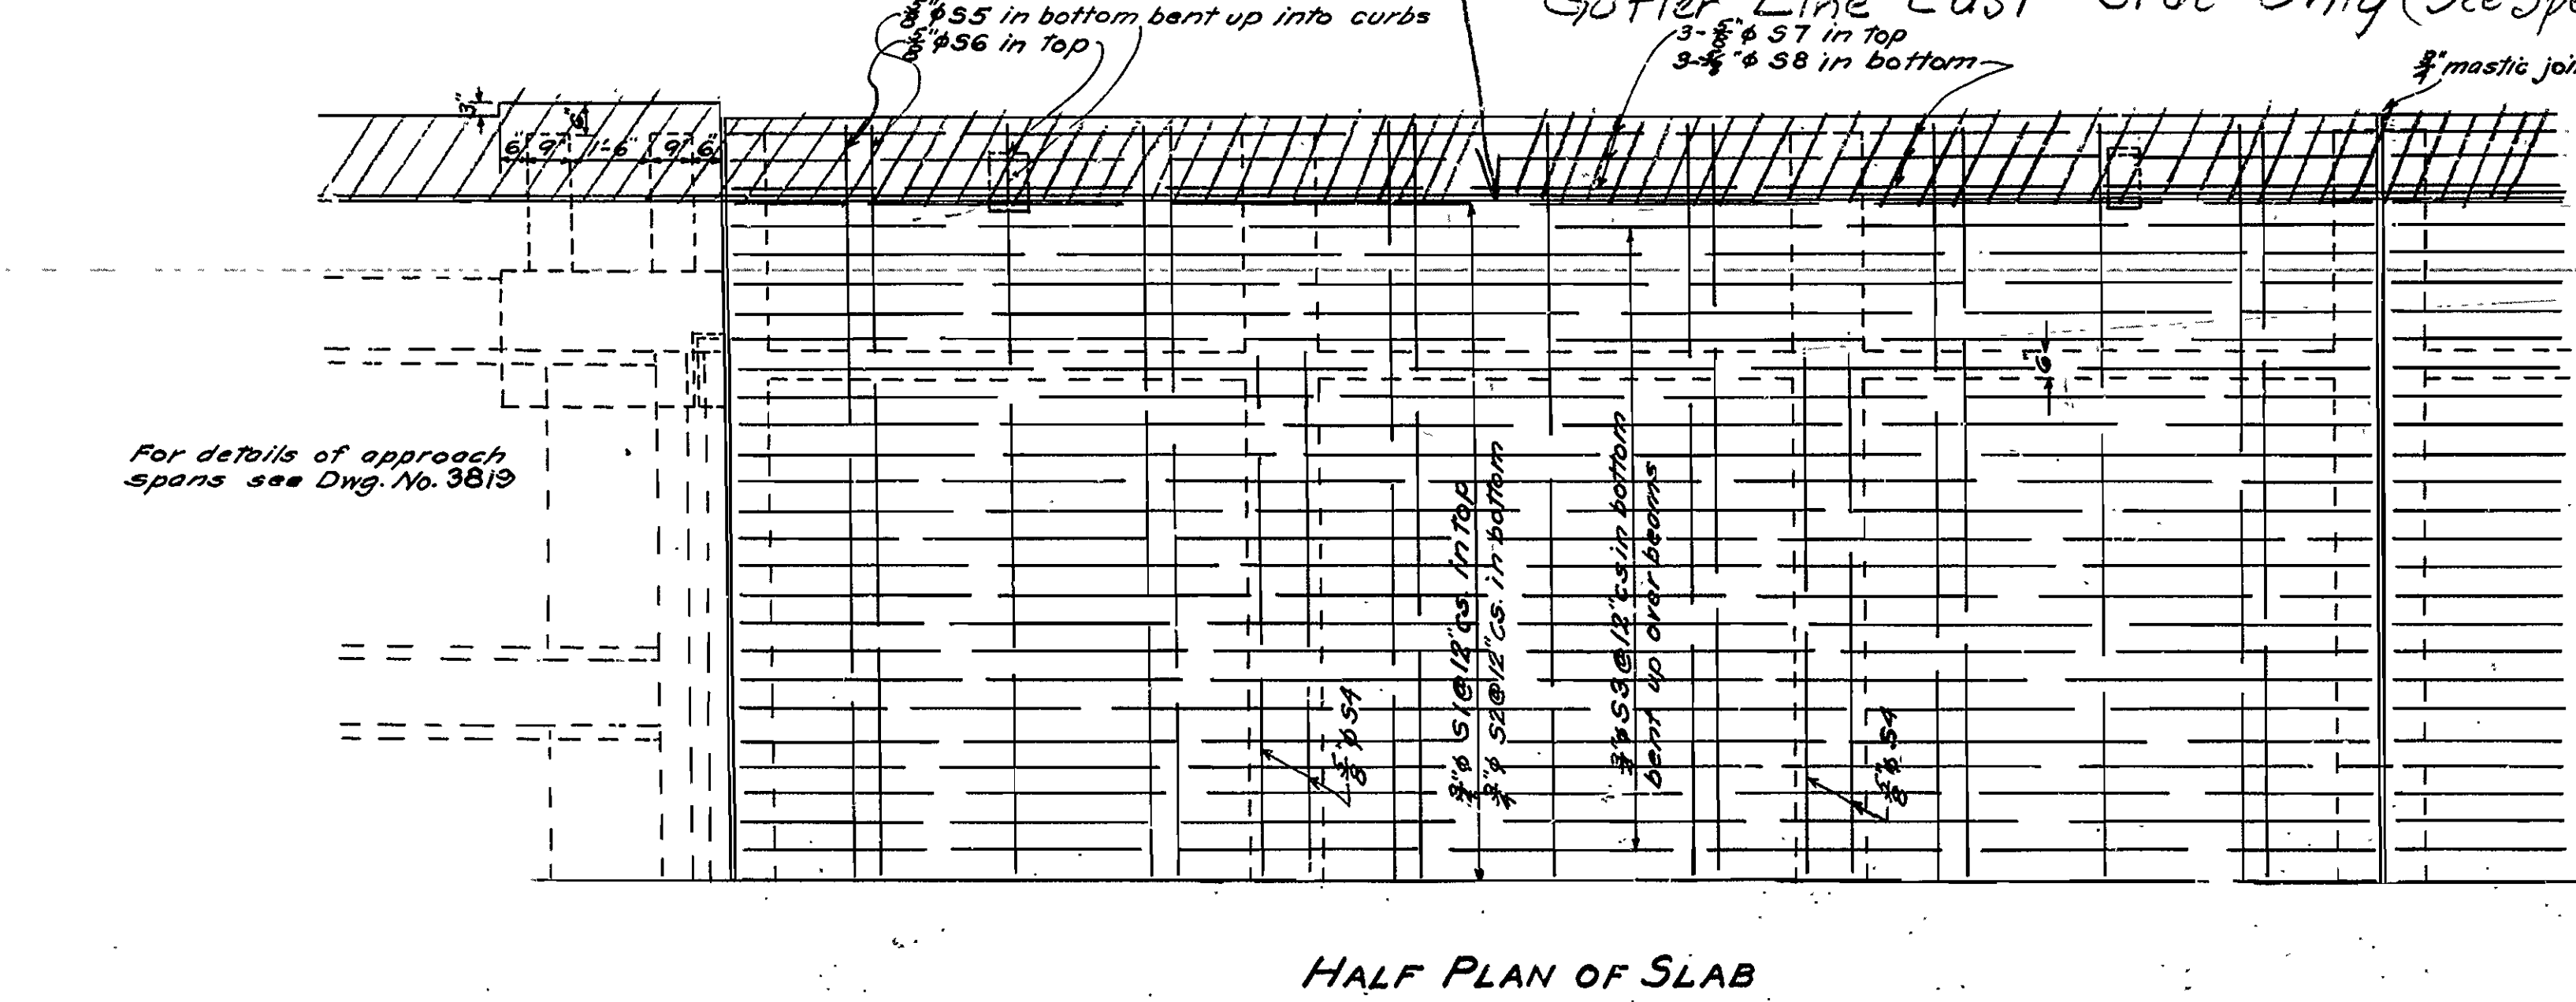 5/8"φ S5 in bottom bent up into curbs
5/8"φ S6 in top
Gutter Line East Side Only (See Spe
3-5/8"φ S7 in top
3-5/8"φ S8 in bottom
3/4" mastic joi
3"
6"
6" 9" 1'-6" 9" 6"
6"
For details of approach
spans see Dwg. No. 3819
5/8"φ S4
3/4"φ S1 @ 12"cs. in top
3/4"φ S2 @ 12"cs. in bottom
3/4"φ S3 @ 12"cs. in bottom
bent up over beams
5/8"φ S4
HALF PLAN OF SLAB